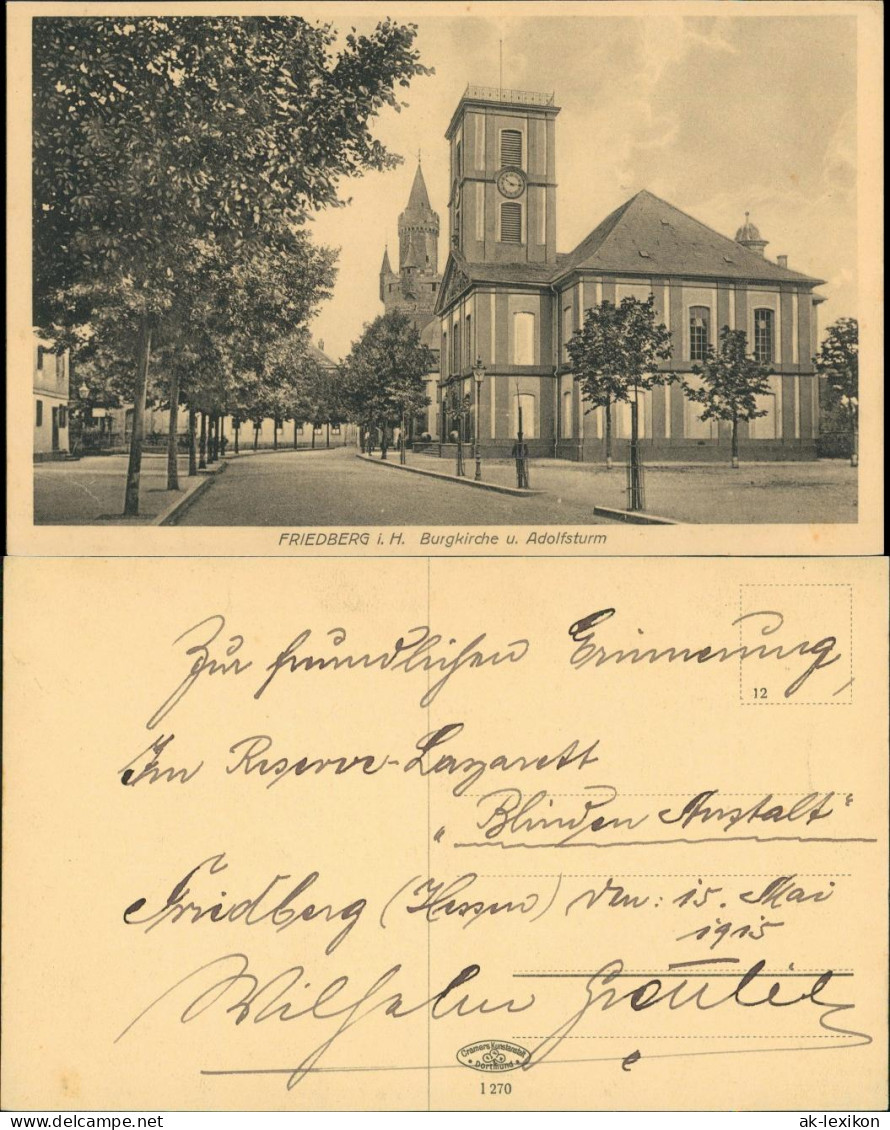 FRIEDBERG i. H. Burgkirche u. Adolfsturm
Zur freundlichen Erinnerung,
12
Im Reserve-Lazarett
„Blinden Anstalt“
Friedberg (Hessen) den: 15. Mai
1915
Wilhelm
Cramers Kunstanstalt
Dortmund
1 270
www.delcampe.net
ak-lexikon